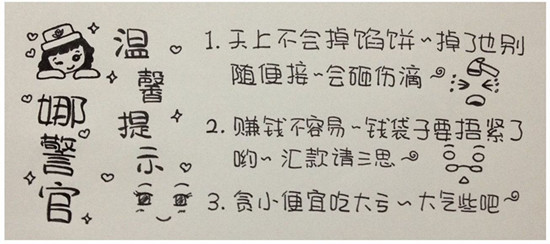 娜警官
温馨提示
1. 天上不会掉馅饼~掉了也别
随便接~会砸伤滴
2. 赚钱不容易~钱袋子要捂紧了
哟~汇款请三思
3. 贪小便宜吃大亏~大气些吧